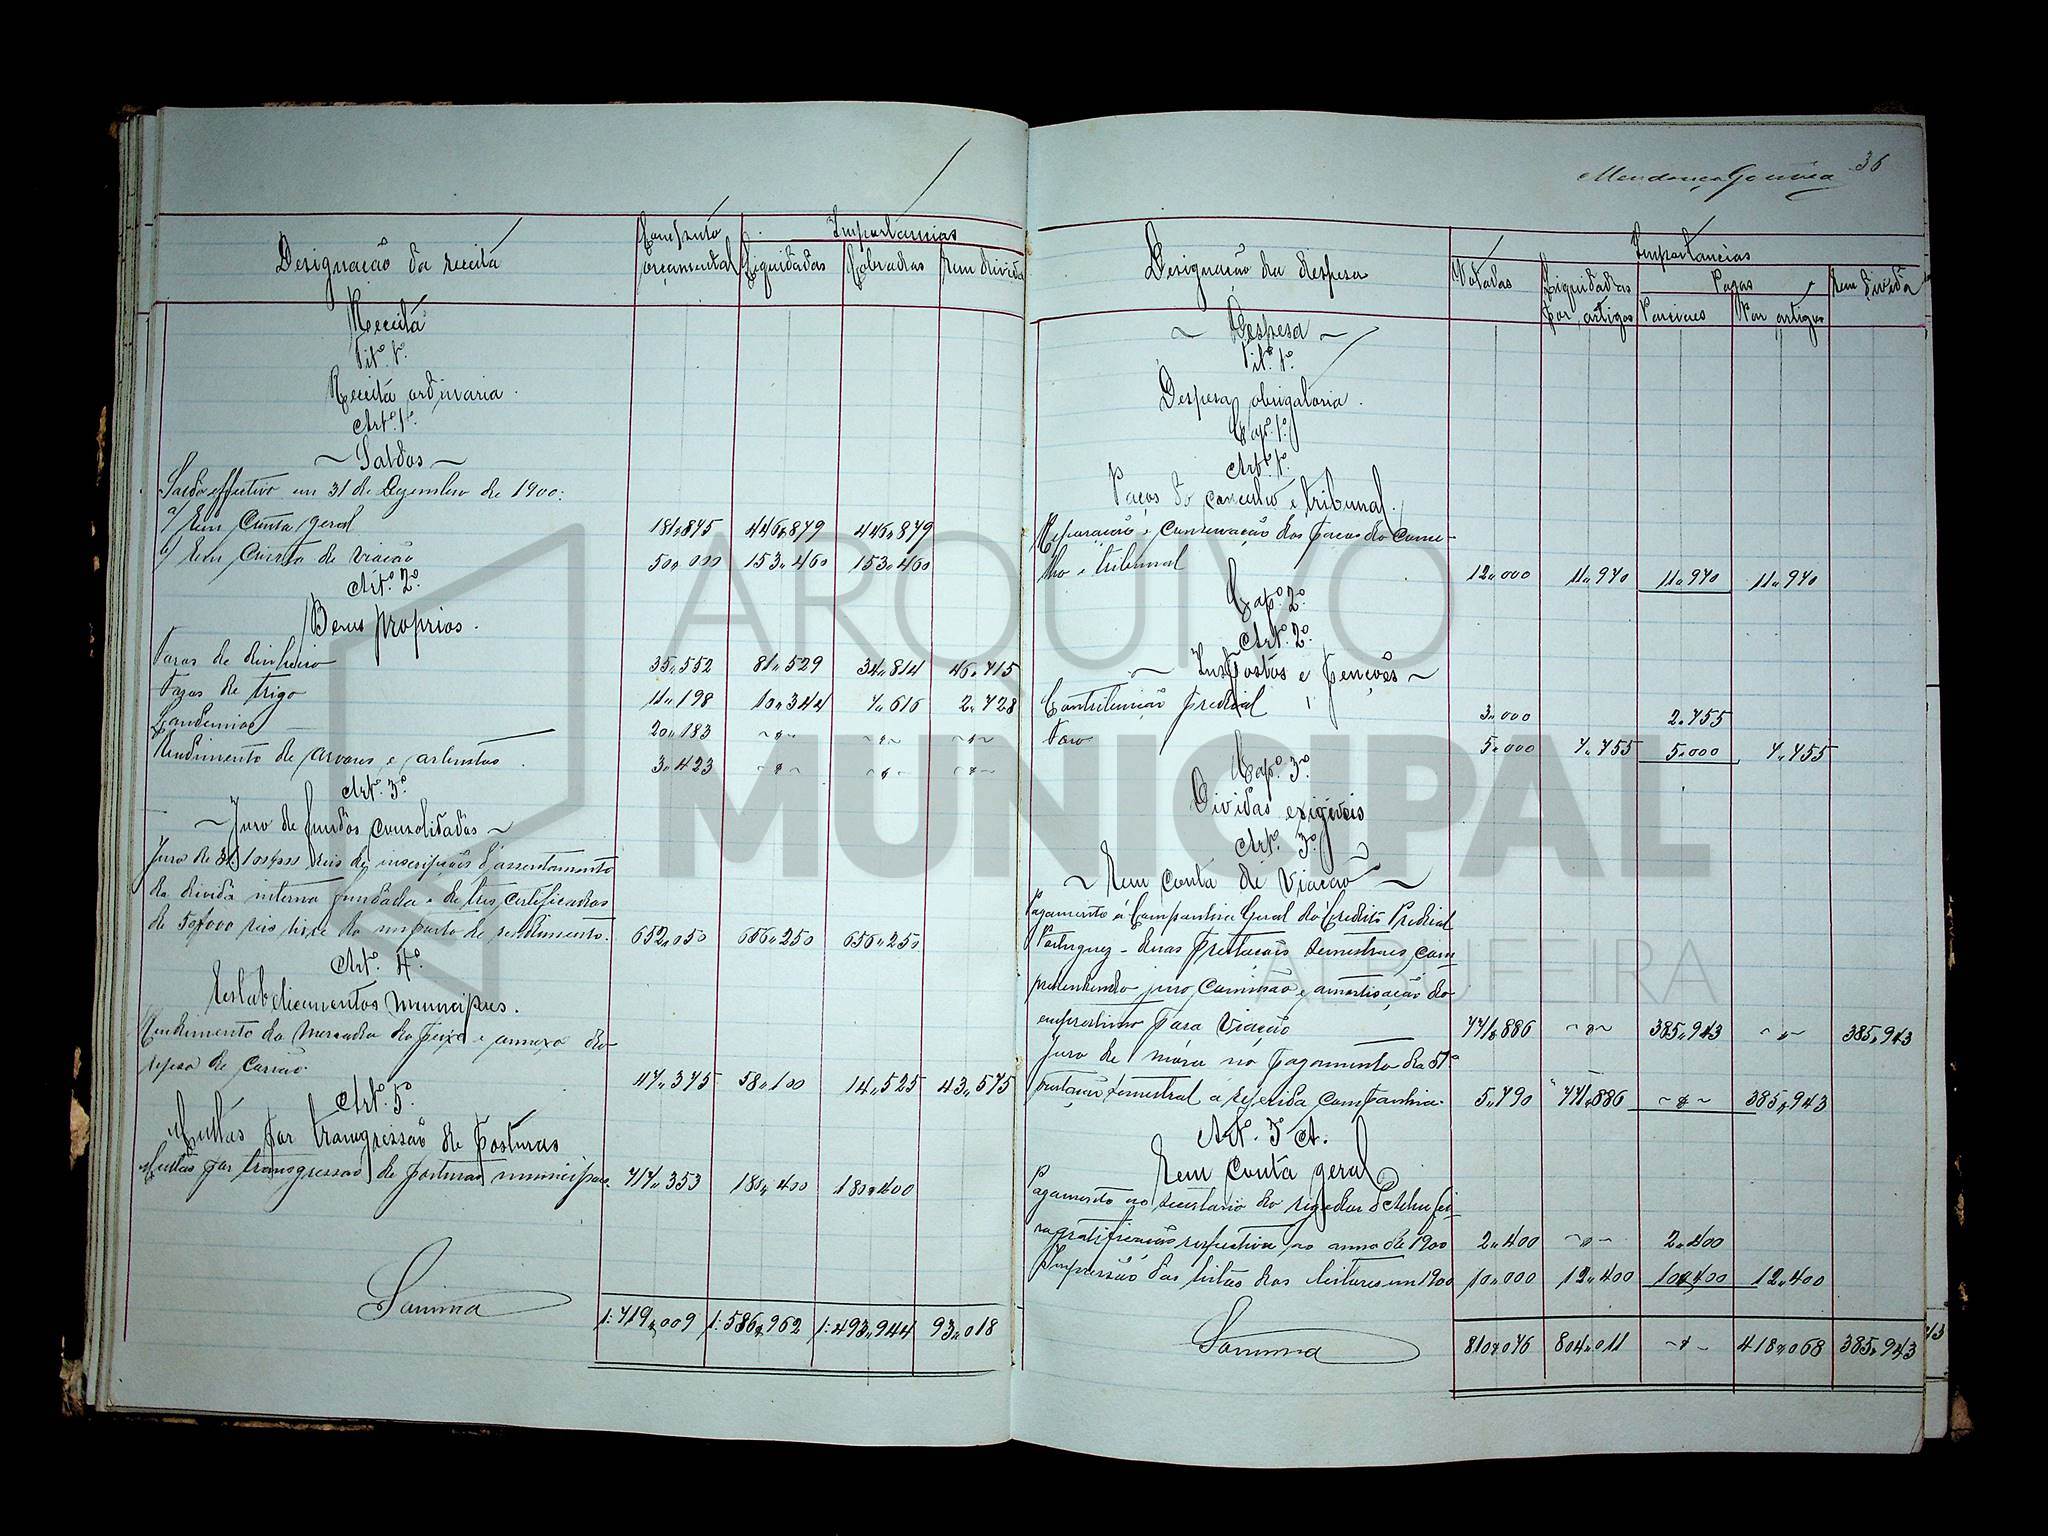 Designação da receita
Computo orçamental
Importancias
Liquidadas
Cobradas
Em divida
Receita
Tit.º 1.º
Receita ordinaria.
Art.º 1.º
~ Saldos ~
Saldo effectivo em 31 de Dezembro de 1900:
a) Em Conta geral 446,,879 446,,879
b) Em Conta de viação 50,,000 153,,460 153,,460
Art.º 2.º
Bens proprios.
Foros de dinheiro 35,,552 81,,529 34,,814 46,,715
Foros de trigo 11,,198 10,,344 7,,616 2,,728
Laudemios 20,,183 ~"~ ~"~ ~"~
Rendimento de arvores e arbustos. 3,,423 ~"~ ~"~ ~"~
Art.º 3.º
~ Juro de fundos consolidados ~
Juro de reis de inscripções d'assentamento
da divida interna fundada e de tres certificados
de 50$000 reis livre do imposto de rendimento. 652,,050 656,,250 656,,250
Art.º 4.º
Estabelecimentos municipaes.
Rendimento do Mercado do peixe e annexo de-
speso de carvão 47,,375 58,,100 14,,525 43,,575
Art.º 5.º
Multas por transgressão de posturas
Multas por transgressão de posturas municipaes. 717,,353 180,,400 180,,400
Somma
1:719,,009 1:586,,962 1:493,,944 93,,018
Mendonça Gouvêa 36
Designação da despesa
Importancias
Votadas
Liquidadas por artigos
Pagas
Parciaes
Por artigos
Em divida
~ Despesa ~
Tit.º 1.º
Despesa obrigatoria.
Cap.º 1.º
Art.º 1.º
Paços do concelho e tribunal.
Reparação e conservação dos paços do conce-
lho e tribunal 12,,000 11,,970 11,,970 11,,970
Cap.º 2.º
Art.º 2.º
~ Impostos e penções ~
Contribuição predial 3,,000 2,,755
Foro 5,,000 7,,755 5,,000 7,,755
Cap.º 3.º
Dividas exigiveis
Art.º 3.º
~ Em conta de viação ~
Pagamento á Companhia Geral do Credito Predial
Portuguez - duas prestações semestraes, com-
prehendendo juro, commissão e amortisação do
emprestimo para viação 771,,886 ~"~ 385,,943 ~"~ 385,,943
Juro de móra no pagamento da
prestação semestral á referida companhia. 5,,790 771,,886 ~"~ 385,,943
Art.º 3.º A.
Em conta geral
Pagamento ao secretario do regedor d'Albufei-
ra gratificação respectiva ao anno de 1900 2,,400 ~"~ 2,,400
Impressão das listas dos eleitores em 1900 10,,000 12,,400 10,,400 12,,400
Somma
810,,076 804,,011 ~"~ 418,,068 385,,943
ARQUIVO
MUNICIPAL
ALBUFEIRA